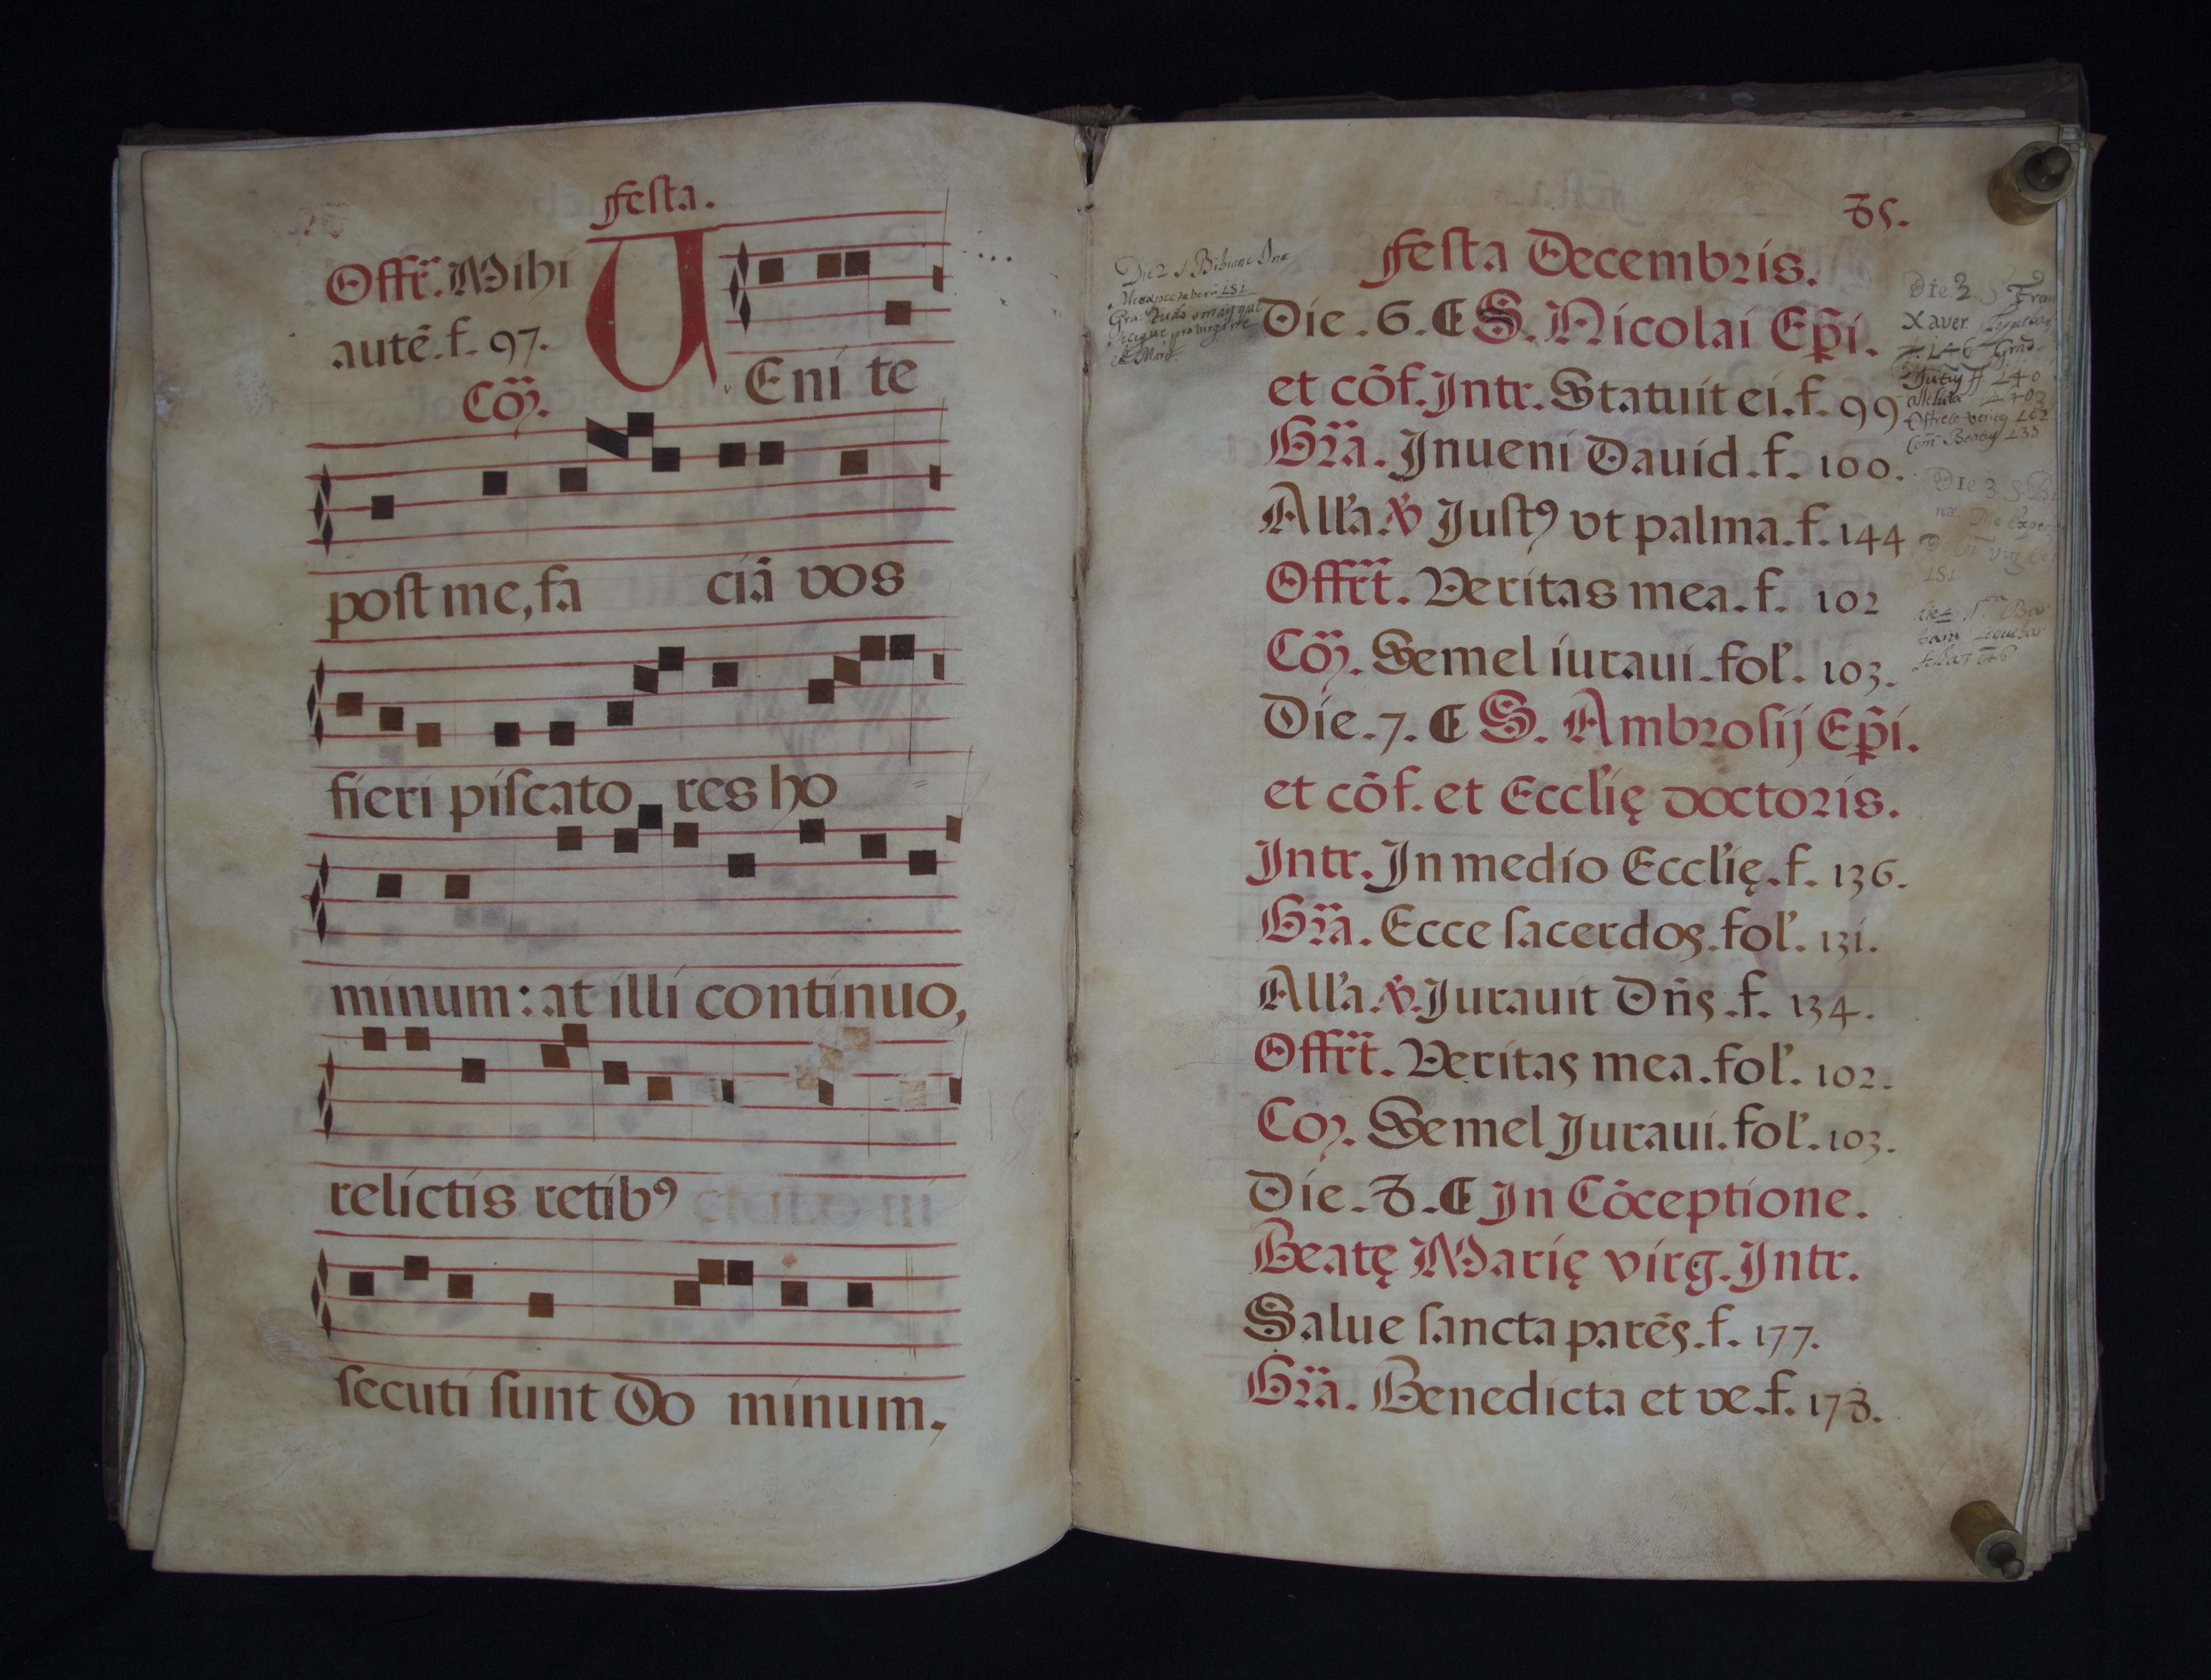 festa.
Offr̃. Mihi
autē. f. 97.
Cõ.
VEni te
post me, fa ciā vos
fieri piſcato res ho
minum: at illi continuo,
relictis retibꝰ
ſecuti ſunt Do minum.
85.
festa Decembris.
Die. 6. ¶ S. Nicolai Ep̃i.
et cōf. Intr. Statuit ei. f. 99
Gr̃a. Inueni Dauid. f. 100.
All'a. ℣ Juſtꝰ vt palma. f. 144
Offr̃t. Veritas mea. f. 102
Cõ. Semel iuraui. fol'. 103.
Die. 7. ¶ S. Ambroſij Ep̃i.
et cōf. et Eccl'ię doctoris.
Intr. In medio Eccl'ię. f. 136.
Gr̃a. Ecce ſacerdos. fol'. 131.
All'a. ℣. Jurauit Dn̄s. f. 134.
Offr̃t. Veritas mea. fol'. 102.
Cõ. Semel Juraui. fol'. 103.
Die. 8. ¶ In Cōceptione.
Beatę Marię virg. Intr.
Salue ſancta parēs. f. 177.
Gr̃a. Benedicta et ve. f. 178.
Die 2 S Bibiane
151
Die 3 S Fran
Xaver.
146 Grad.
140
alleluia
veritas 102
Com Beatus 135
Die 3. S
151